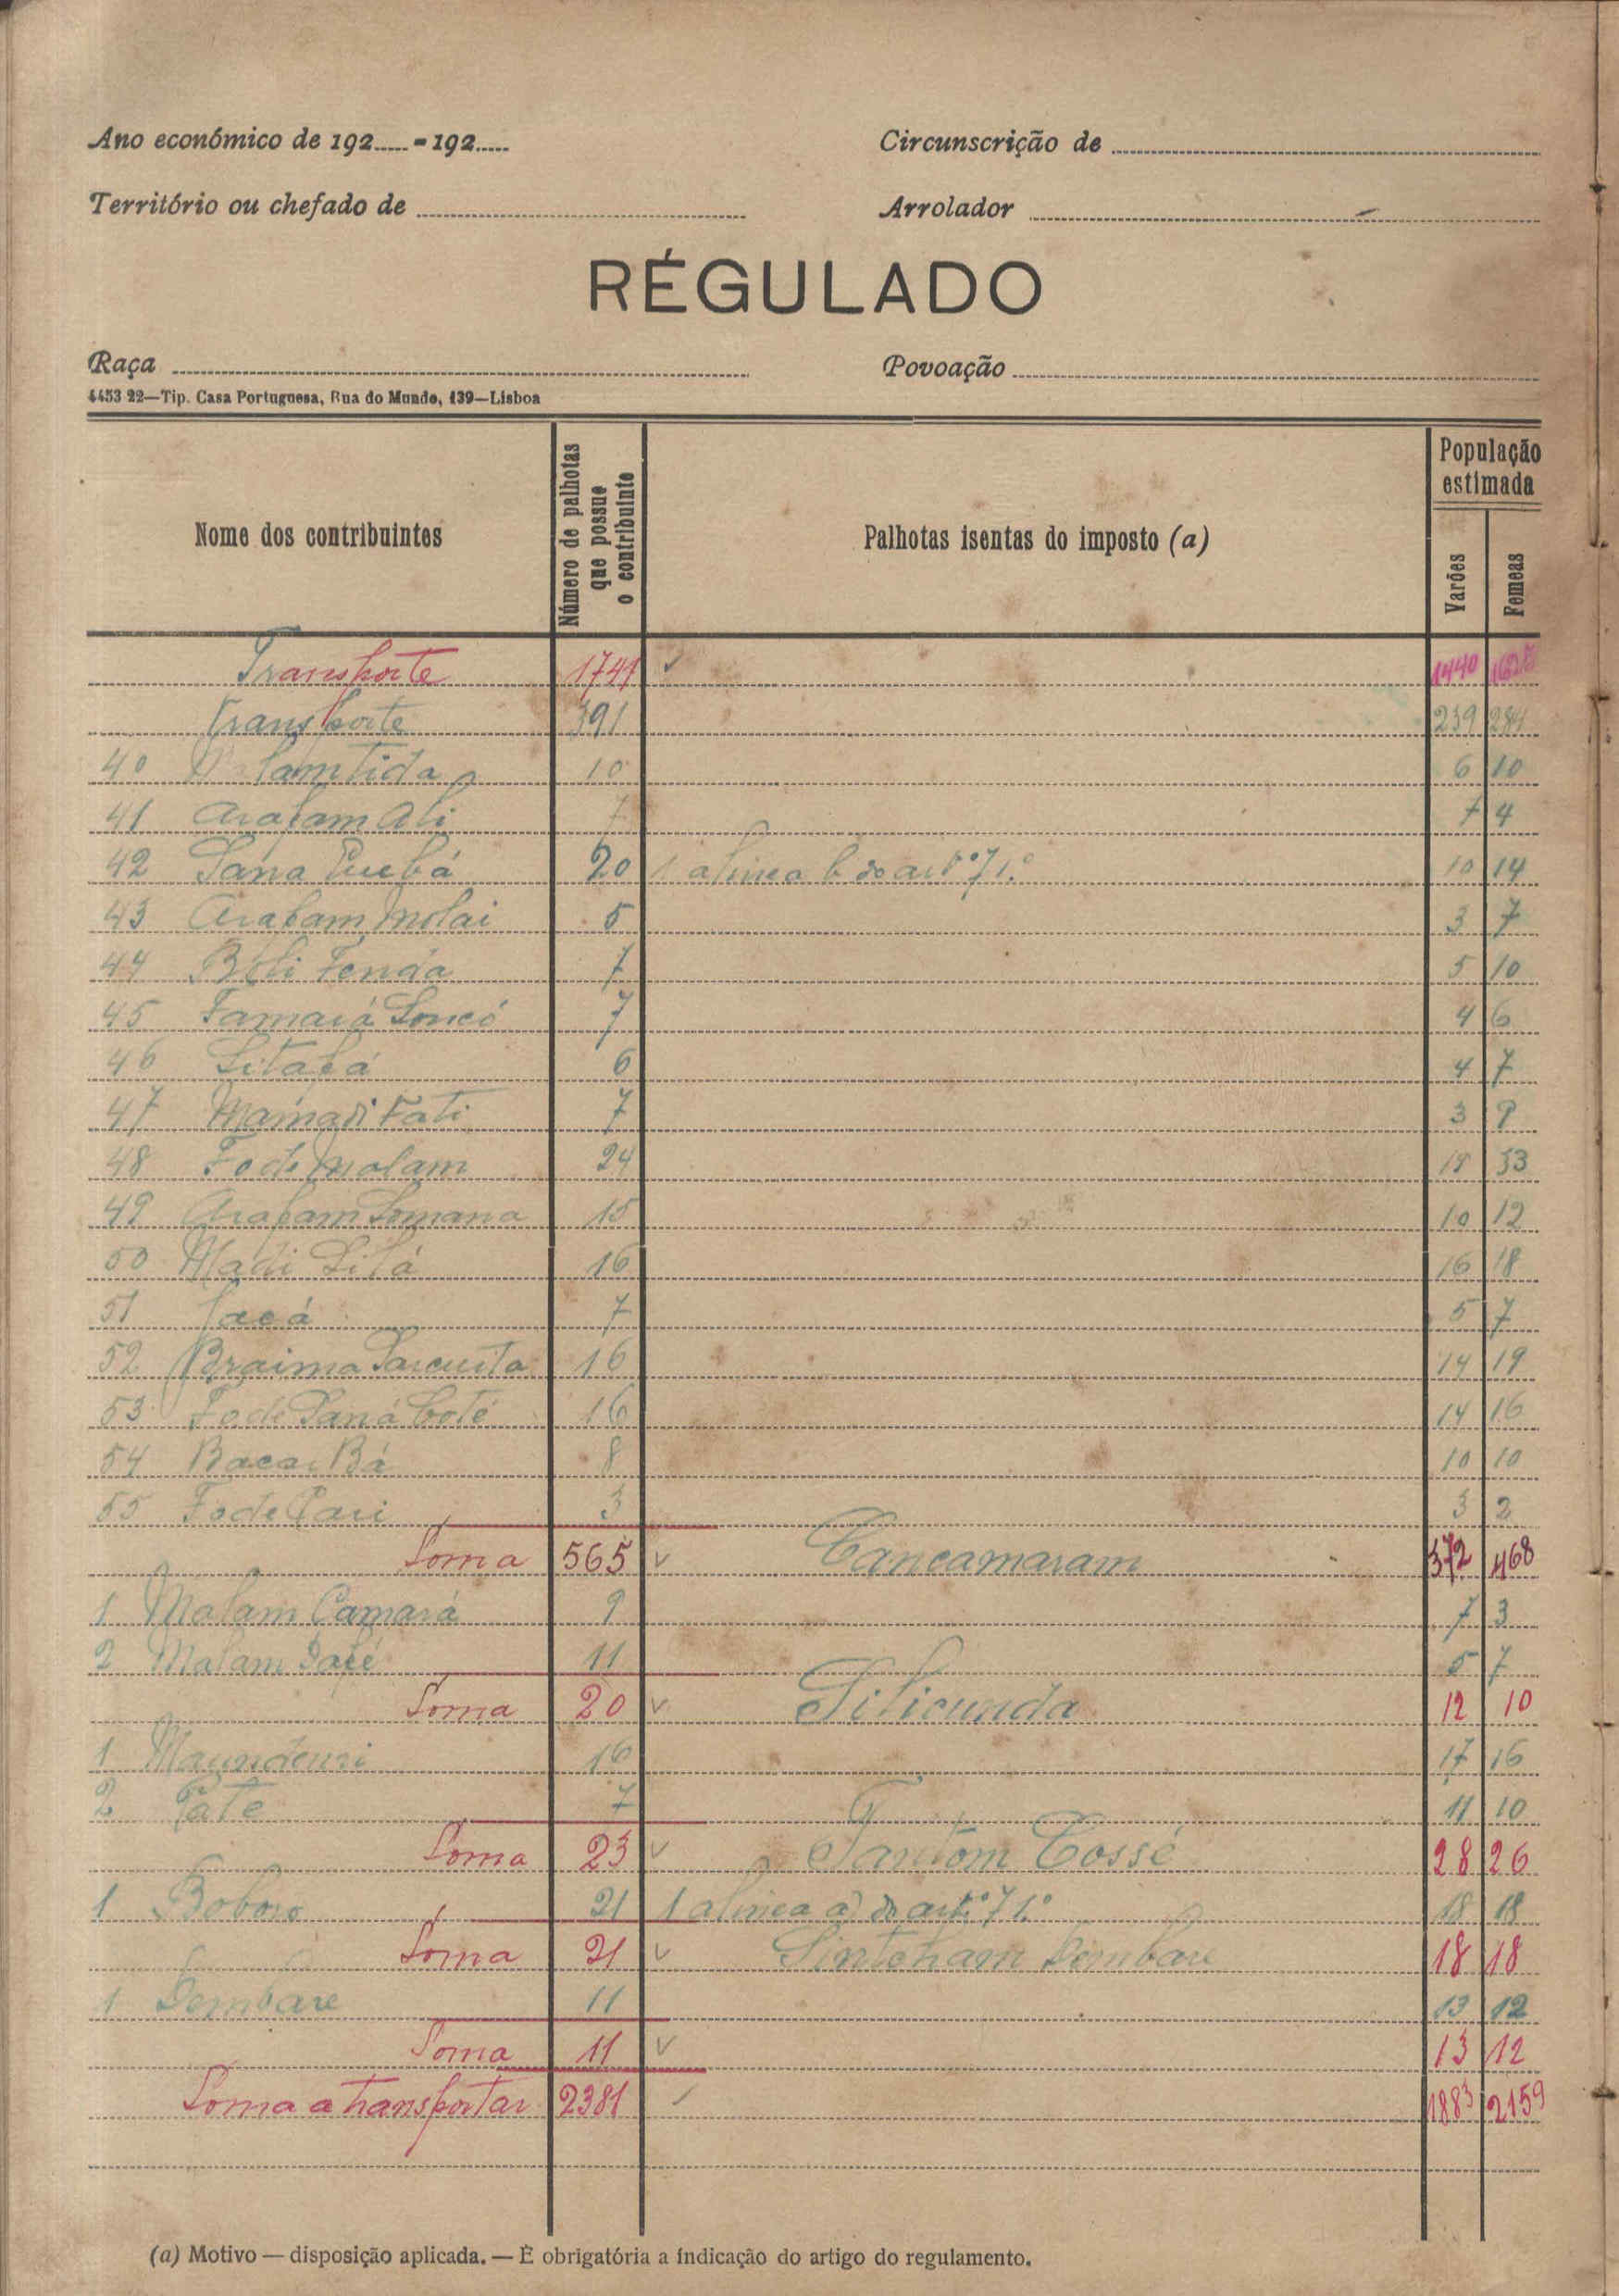 Ano económico de 192..... - 192.....
Circunscrição de
Território ou chefado de
Arrolador
RÉGULADO
Raça
Povoação
4453 22—Tip. Casa Portuguesa, Rua do Mundo, 139—Lisboa
Nome dos contribuintes
Número de palhotas que possue o contribuinte
Palhotas isentas do imposto (a)
População estimada
Varões
Femeas
Transporte 1741 1440
Transporte 391 239 284
40 10 6 10
41 Arafam Ali 7 7 4
42 Sana 20 1 alinea b do artº 71.º 10 14
43 Arafam Molai 5 3 7
44 Boli Fenda 7 5 10
45 Famará Soncó 7 4 6
46 Sitafá 6 4 7
47 Mamadi Fati 7 3 9
48 Fode Malam 24 18 33
49 Arafam Somana 15 10 12
50 Madi Silá 16 16 18
51 7 5 7
52 Braima 16 14 19
53 Fode Saná Coté 16 14 16
54 Bacar Bá 8 10 10
55 Fode Cari 3 3 2
Soma 565 Cancamaram 372 468
1 Malam Camará 9 7 3
2 Malam Dabé 11 5 7
Soma 20 Silicunda 12 10
1 Maundouri 16 17 16
2 Paté 7 11 10
Soma 23 Tantom Cossé 28 26
1 Boboro 21 1 alinea a) do artº 71.º 18 18
Soma 21 Sintcham Dembare 18 18
1 Dembare 11 13 12
Soma 11 13 12
Soma a transportar 2381 1883 2159
(a) Motivo — disposição aplicada. — É obrigatória a indicação do artigo do regulamento.